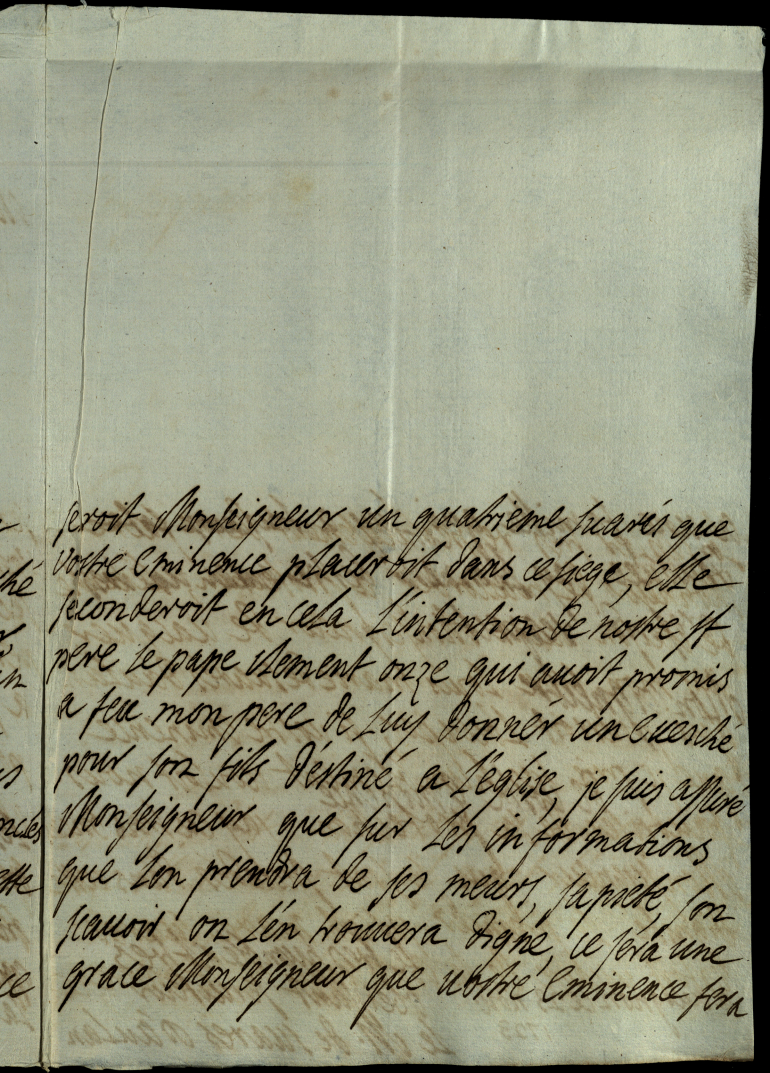 seroit Monseigneur un quatrieme suarés que
vostre Eminence placeroit dans ce siege, elle
seconderoit en cela l'intention de nostre st
pere le pape clement onze qui auoit promis
a feu mon pere de luy donnér un euesché
pour son fils déstiné a l'église, je suis assuré
Monseigneur que sur les informations
que l'on prendra de ses meurs, sa pieté, son
scauoir on l'én trouuera digne, ce séra une
grace Monseigneur que uostré Eminence fera